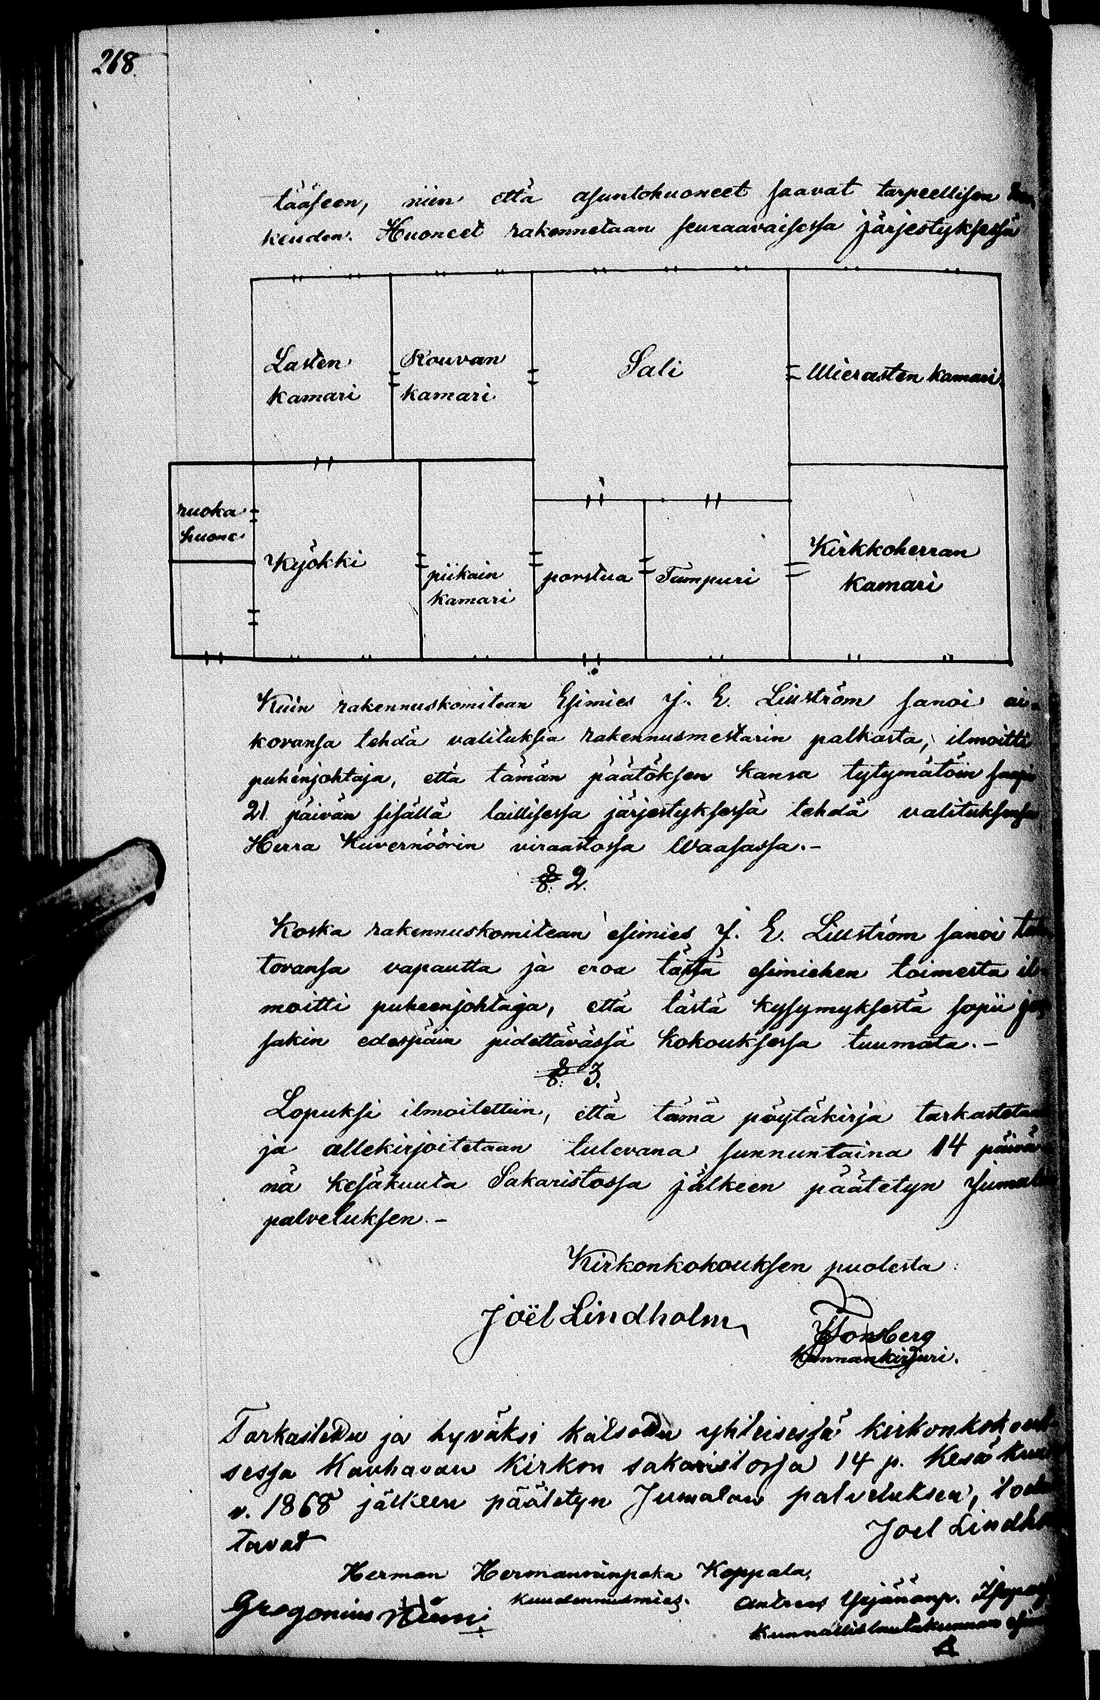 268
tääseen, niin että asuntohuoneet saavat tarpeellisen
keuden. Huoneet rakennetaan seuraavaisessa järjestyksessä
Lasten
kamari
Rouvan
kamari
Sali
Wierasten kamari
ruoka
huone
Kyökki
piikain
kamari
porstua
Tampuri
Kirkkoherran
kamari
Kuin rakennuskomitean Esimies J. E. Lillström sanoi ai-
kovansa tehdä valituksia rakennusmestarin palkasta, ilmoitti
puhenjohtaja, että tämän päätöksen kansa tytymätöin saapi
21 päivän sisällä laillisessa järjestyksessä tehdä valituksensa
Herra Kuvernöörin virastossa Waasassa.-
§ 2.
Koska rakennuskomitean esimies J. E. Lillström sanoi tah-
tovansa vapautta ja eroa tästä esimiehen toimesta il-
moitti puheenjohtaja, että tästä kysymyksestä sopii jos-
sakin edespäin pidettävässä kokouksessa tuumata.-
§ 3.
Lopuksi ilmoitettiin, että tämä pöytäkirja tarkastetaan
ja allekirjoitetaan tulevana sunnuntaina 14 päivä-
nä kesäkuuta Sakaristossa jälkeen päätetyn Jumalan
palveluksen.-
Kirkonkokouksen puolesta:
Joël Lindholm
Kunnankirjuri.
Tarkastettu ja hyväksi katsottu yhteisessä kirkonkokouk-
sessa Kauhavan kirkon sakaristossa 14 p. Kesäkuu
v. 1868 jälkeen päätetyn Jumalan palveluksen, todis-
tavat
Joel Lindho
Herman Hermanninpoka Koppala,
Kuudennusmies.
Andreas Yrjänänp.
Gregorius
Kunnallislautakunnan esimies